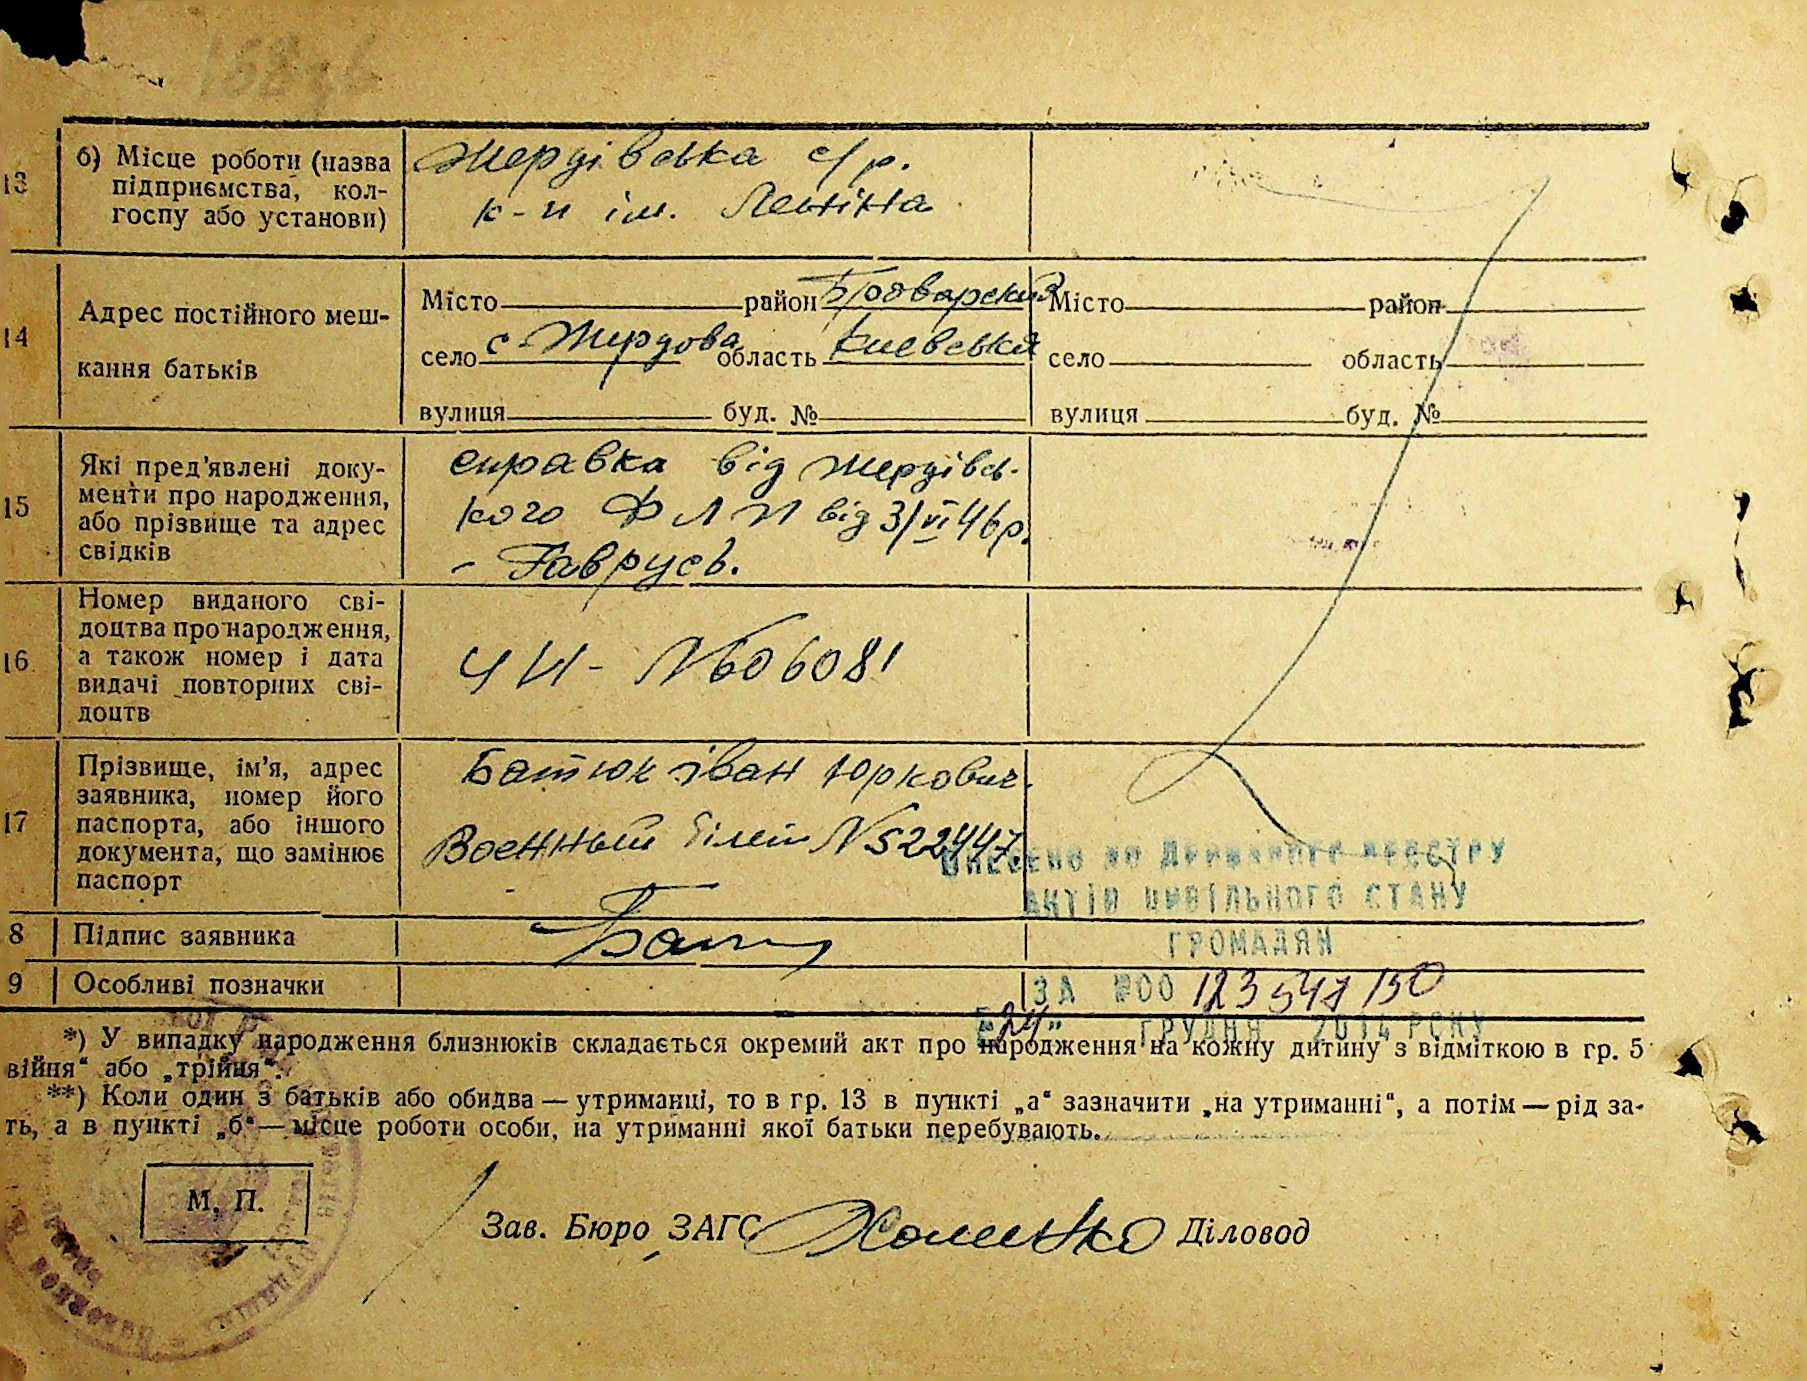 13
б) Місце роботи (назва
підприємства, кол-
госпу або установи)
Жердівська с/р.
к-п ім. Леніна
14
Адрес постійного меш-
кання батьків
Місто район Броварский
село с. Жердова область Киевська
вулиця буд. №
Місто район
село область
вулиця буд. №
15
Які пред'явлені доку-
менти про народження,
або прізвище та адрес
свідків
справка від Жердівсь-
кого ФЛП від 3/VI 46р.
- Гаврусь.
16
Номер виданого сві-
доцтва про народження,
а також номер і дата
видачі повторних сві-
доцтв
ЧИ- №606081
17
Прізвище, ім'я, адрес
заявника, номер його
паспорта, або іншого
документа, що замінює
паспорт
Батюк Іван Юркович.
Военный білет №522447
8
Підпис заявника
9
Особливі позначки
ВНЕСЕНО ДО ДЕРЖАВНОГО РЕЄСТРУ
АКТІВ ЦИВІЛЬНОГО СТАНУ
ГРОМАДЯН
ЗА №00 123547150
"24" ГРУДНЯ 2014 РОКУ
*) У випадку народження близнюків складається окремий акт про народження на кожну дитину з відміткою в гр. 5
війня“ або „трійня“.
**) Коли один з батьків або обидва — утриманці, то в гр. 13 в пункті „а“ зазначити „на утриманні“, а потім — рід за-
ть, а в пункті „б“ — місце роботи особи, на утриманні якої батьки перебувають.
М. П.
Зав. Бюро ЗАГС Хоменко Діловод